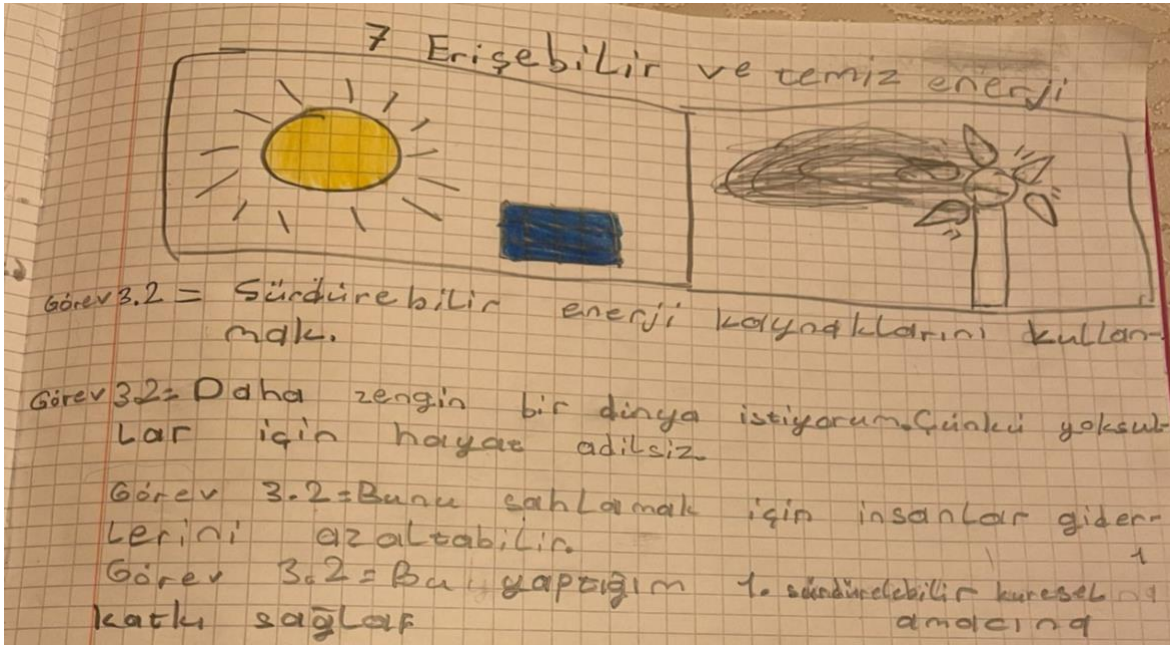 7 Erişebilir ve temiz enerji
Görev 3.2 = Sürdürebilir enerji kaynaklarını kullan-
mak.
Görev 3.2= Daha zengin bir dünya istiyorum. Çünkü yoksul-
lar için hayat adilsiz.
Görev 3.2=Bunu sahlamak için insanlar gider-
lerini azaltabilir.
1
Görev 3.2=Bu yaptığım 1. sürdürelebilir küresel
katkı sağlar amacına